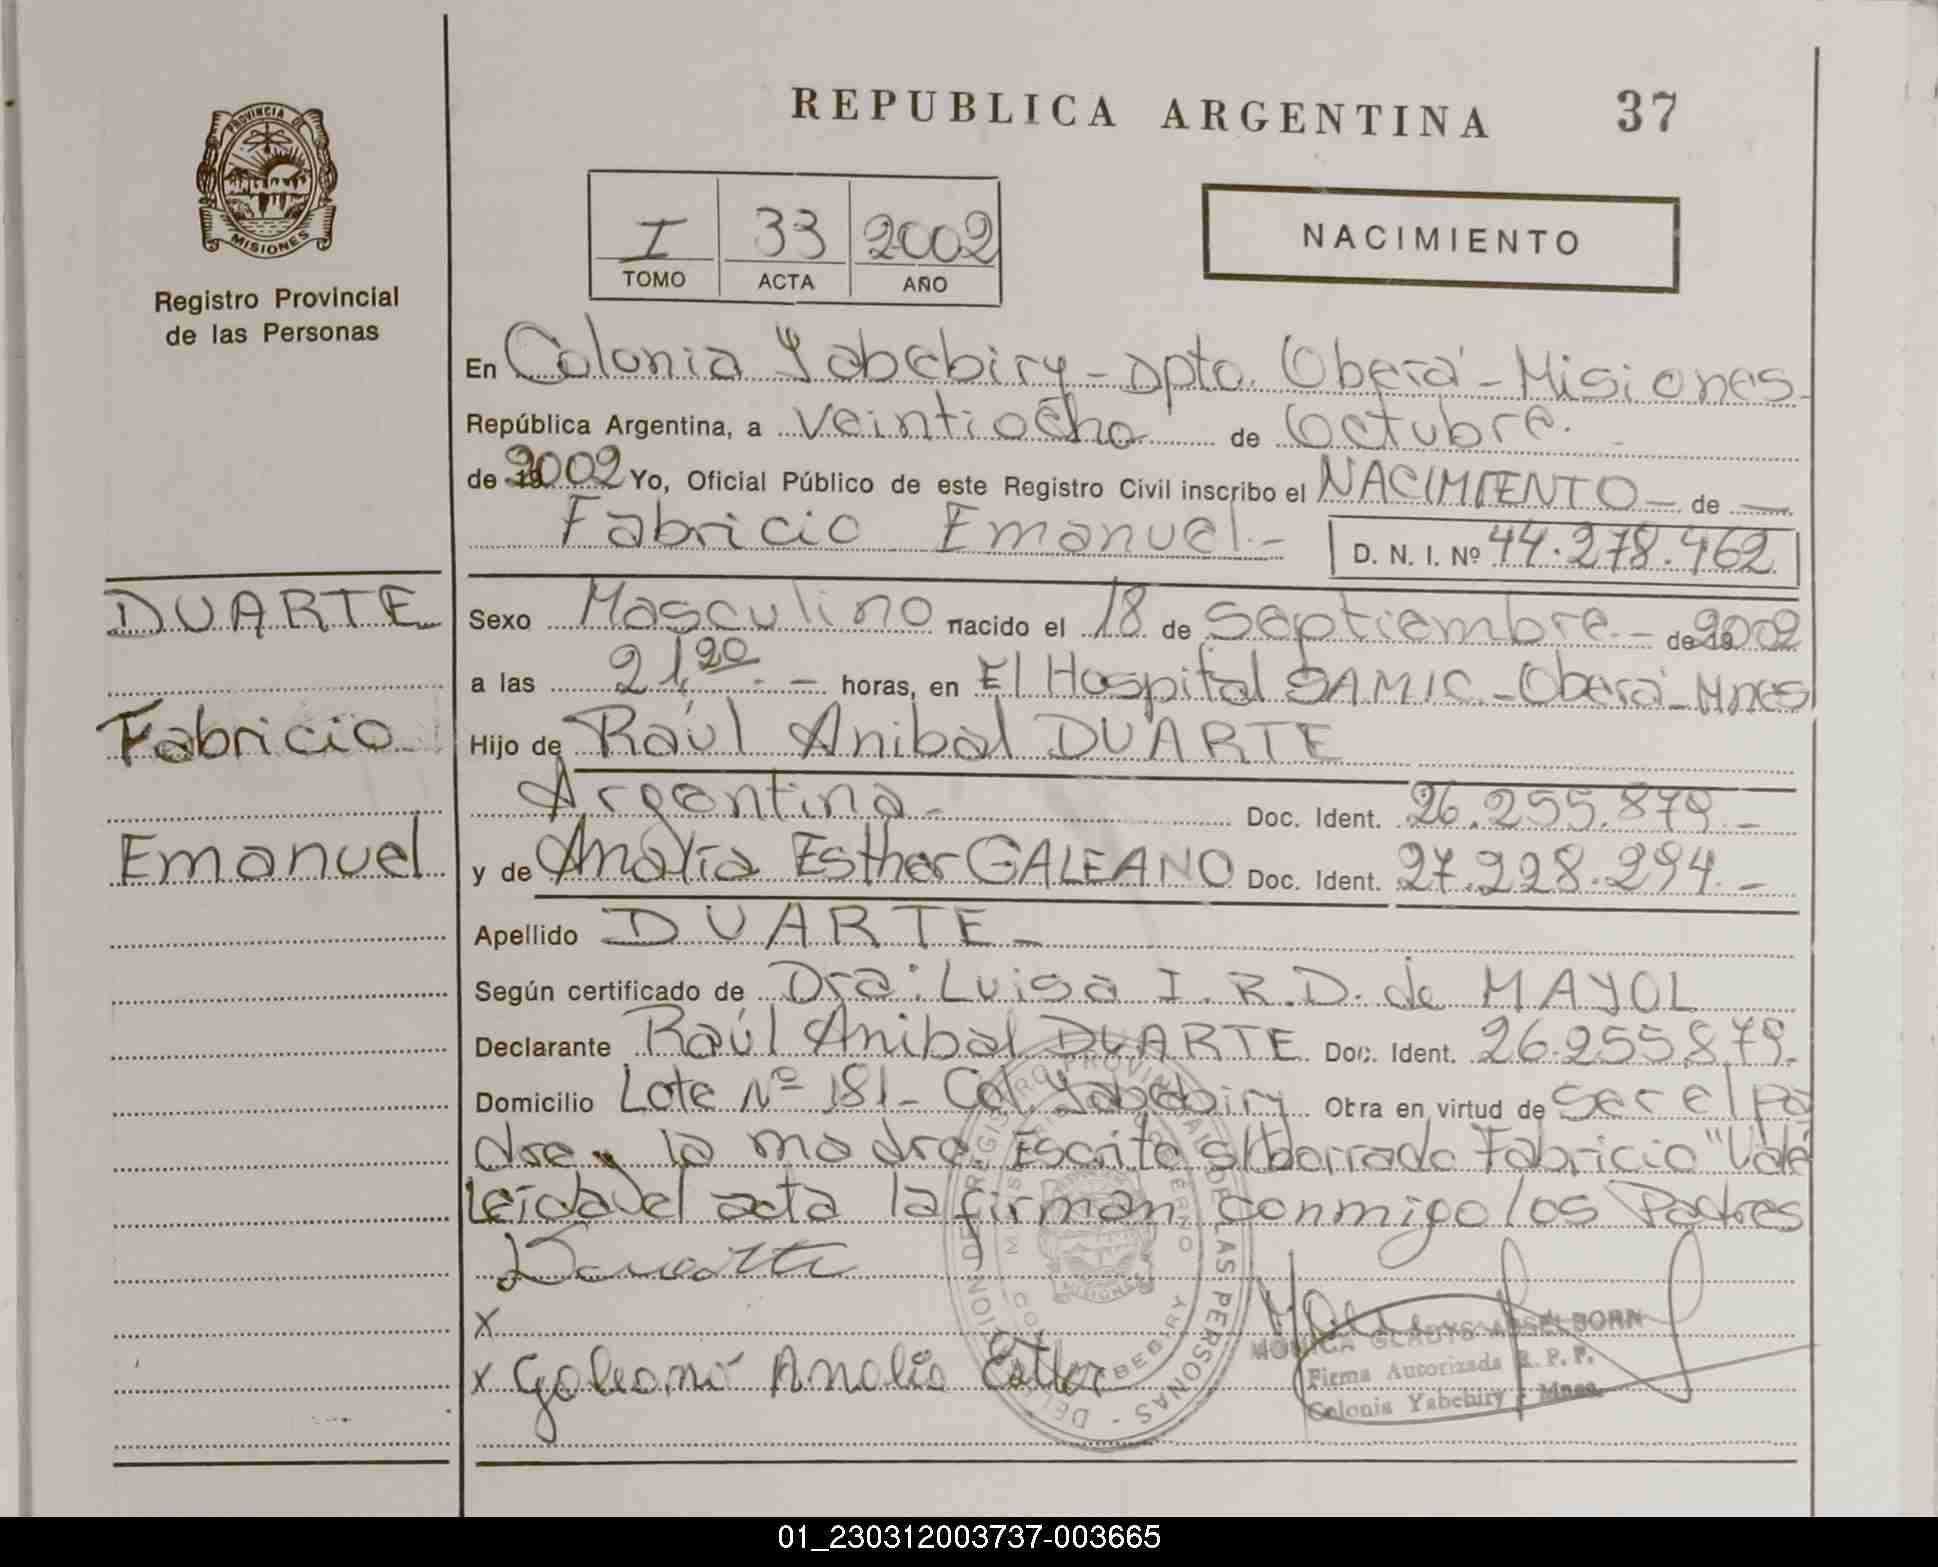 REPUBLICA ARGENTINA 37
PROVINCIA DE
MISIONES
Registro Provincial
de las Personas
I 33 2002
TOMO ACTA AÑO
NACIMIENTO
En Colonia Yabebiry - Dpto. Oberá - Misiones -
República Argentina, a veintiocho de Octubre.
de 2002 Yo, Oficial Público de este Registro Civil inscribo el NACIMIENTO - de -
Fabricio Emanuel - D. N. I. Nº 44.278.462
DUARTE
Fabricio
Emanuel
Sexo Masculino nacido el 18 de Septiembre - de 2002
a las 21,20 - horas, en El Hospital SAMIC - Oberá - Mnes
Hijo de Raúl Anibal DUARTE
Argentina - Doc. Ident. 26.255.879 -
y de Analía Esther GALEANO Doc. Ident. 27.228.294 -
Apellido DUARTE -
Según certificado de Dra: Luisa I. R. D. de MAYOL
Declarante Raúl Anibal DUARTE Doc. Ident. 26.255.879.-
Domicilio Lote Nº 181 - Col. Yabebiry Obra en virtud de Ser el pa
dre y la madre. Escrito s/borrado Fabricio "Vale
Leída el acta la firman conmigo los Padres
x
x Galeano Analia Ester
MONICA GLADYS
Firma Autorizada R. P. P.
Colonia Yabebiry - Mnes.
REGISTRO PROVINCIAL DE LAS PERSONAS
01_230312003737-003665